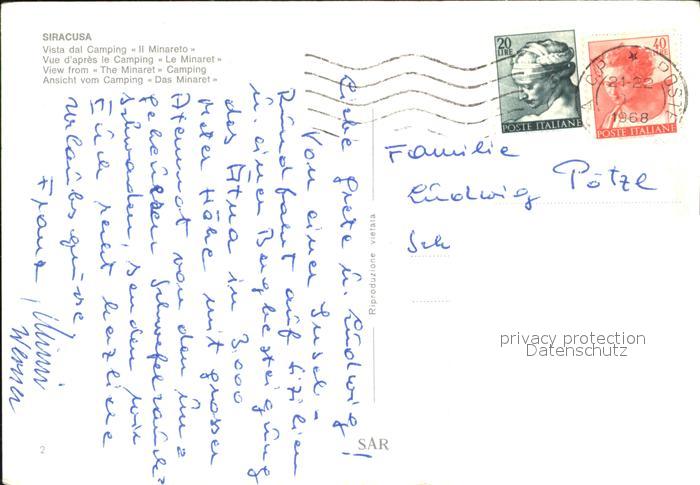 SIRACUSA
Vista dal Camping « Il Minareto »
Vue d'après le Camping « Le Minaret »
View from « The Minaret » Camping
Ansicht vom Camping « Das Minaret »
Liebe Grete u. Ludwig!
Von einer Insel-
Rundfahrt auf Sizilien
u. einer Bergbesteigung
des Ätna in 3.000
Meter Höhe mit grosser
Atemnot von den
gelben Schwefelrauch-
schwaden, senden wir
Euch recht herzliche
Urlaubsgrüsse
Franz, Mimi
Werner
20
LIRE
POSTE ITALIANE
40
LIRE
POSTE ITALIANE
21-22
1968
Familie
Ludwig Pötzl
Sch
Riproduzione vietata
privacy protection
Datenschutz
2
SAR